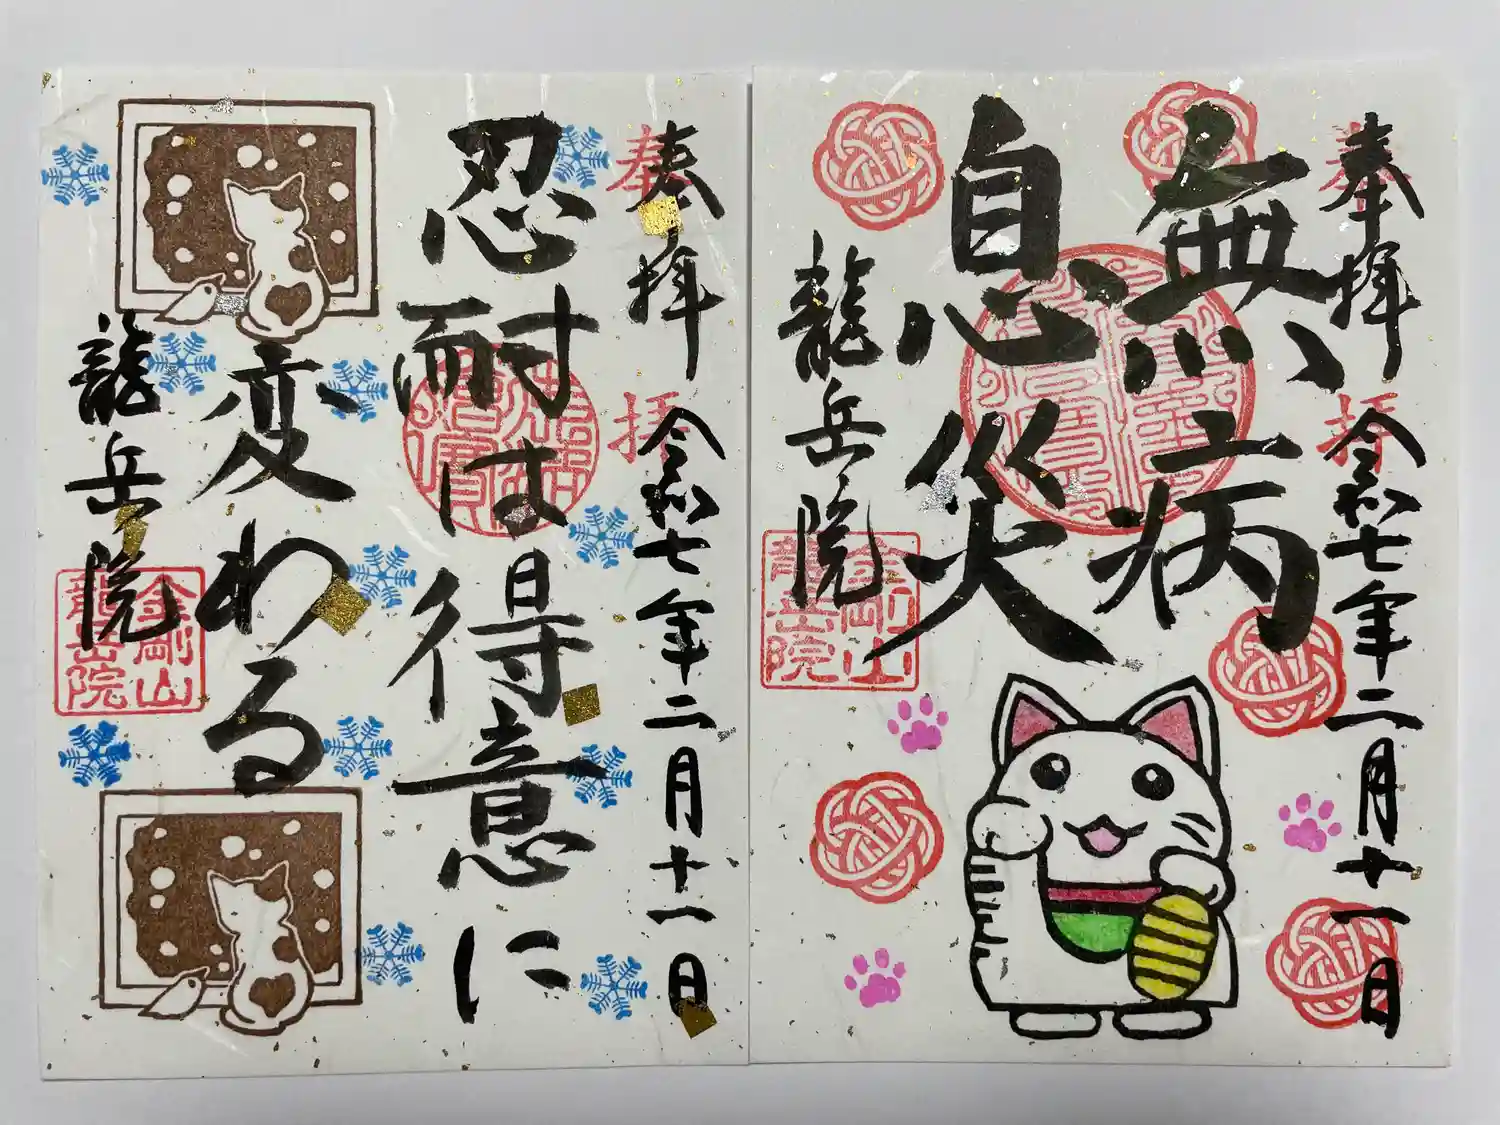 奉拝
令和七年二月十一日
無病
息災
龍岳院
奉拝
金剛山
龍岳院
奉拝
令和七年二月十一日
忍耐は得意に
変わる
龍岳院
奉拝
金剛山
龍岳院